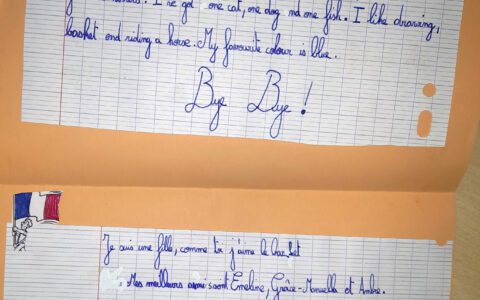 I've got one cat, one dog nd one fish. I like drawing,
basket and riding a horse. My favourite colour is blue.
Bye Bye !
Je suis une fille, comme toi j'aime le basket
Mes meilleurs ami sont Emeline, Grâce-Manuella et Ambre.